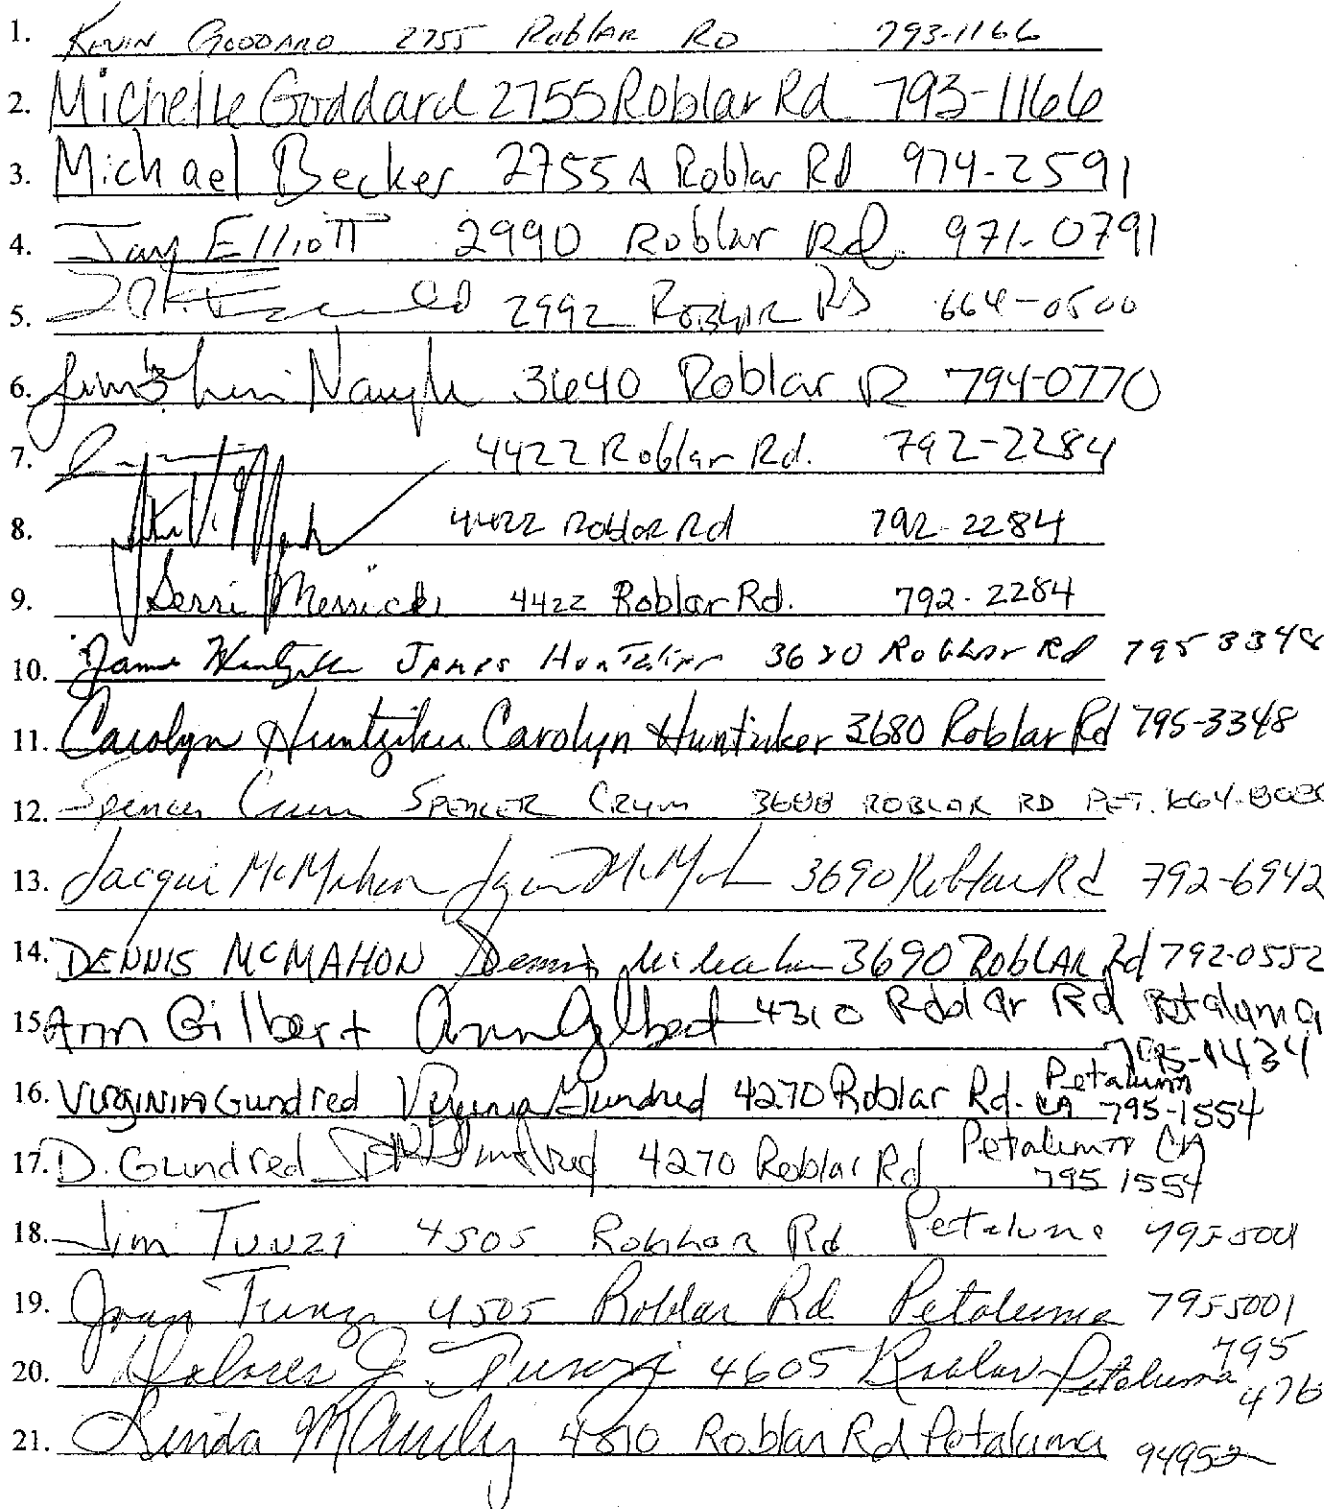 1. Kevin Goddard 2755 Roblar Rd 793-1166
2. Michelle Goddard 2755 Roblar Rd 793-1166
3. Michael Becker 2755 A Roblar Rd 974-2591
4. Jay Elliott 2990 Roblar Rd. 971-0791
5. 2992 Roblar Rd 664-0500
6. Naugle 3640 Roblar R 794-0770
7. 4422 Roblar Rd. 792-2284
8. 4422 Roblar Rd 792-2284
9. Merrick 4422 Roblar Rd. 792-2284
10. James 3620 Roblar Rd 795 3348
11. Carolyn Huntziker Carolyn Huntziker 3680 Roblar Rd 795-3348
12. Spencer Crum SPENCER CRUM ROBLAR RD PET. 664-
13. Jacqui McMahon 3690 Roblar Rd 792-6942
14. DENNIS McMAHON Dennis McMahon 3690 RoblAR Rd 792-0552
15. Ann Gilbert Ann Gilbert 4310 Roblar Rd Petaluma
795-1434
16. VIRGINIA Gundred Virginia Gundred 4270 Roblar Rd. Petaluma
CA 795-1554
17. D. Gundred 4270 Roblar Rd Petaluma CA
795 1554
18. Jim Tunzi 4505 Roblar Rd Petaluma 795-5001
19. Joan Tunzi 4505 Roblar Rd Petaluma 795-5001
20. Dolores J. Tunzi 4605 Roblar Petaluma 795
476
21. Linda 4810 Roblar Rd Petaluma 94952